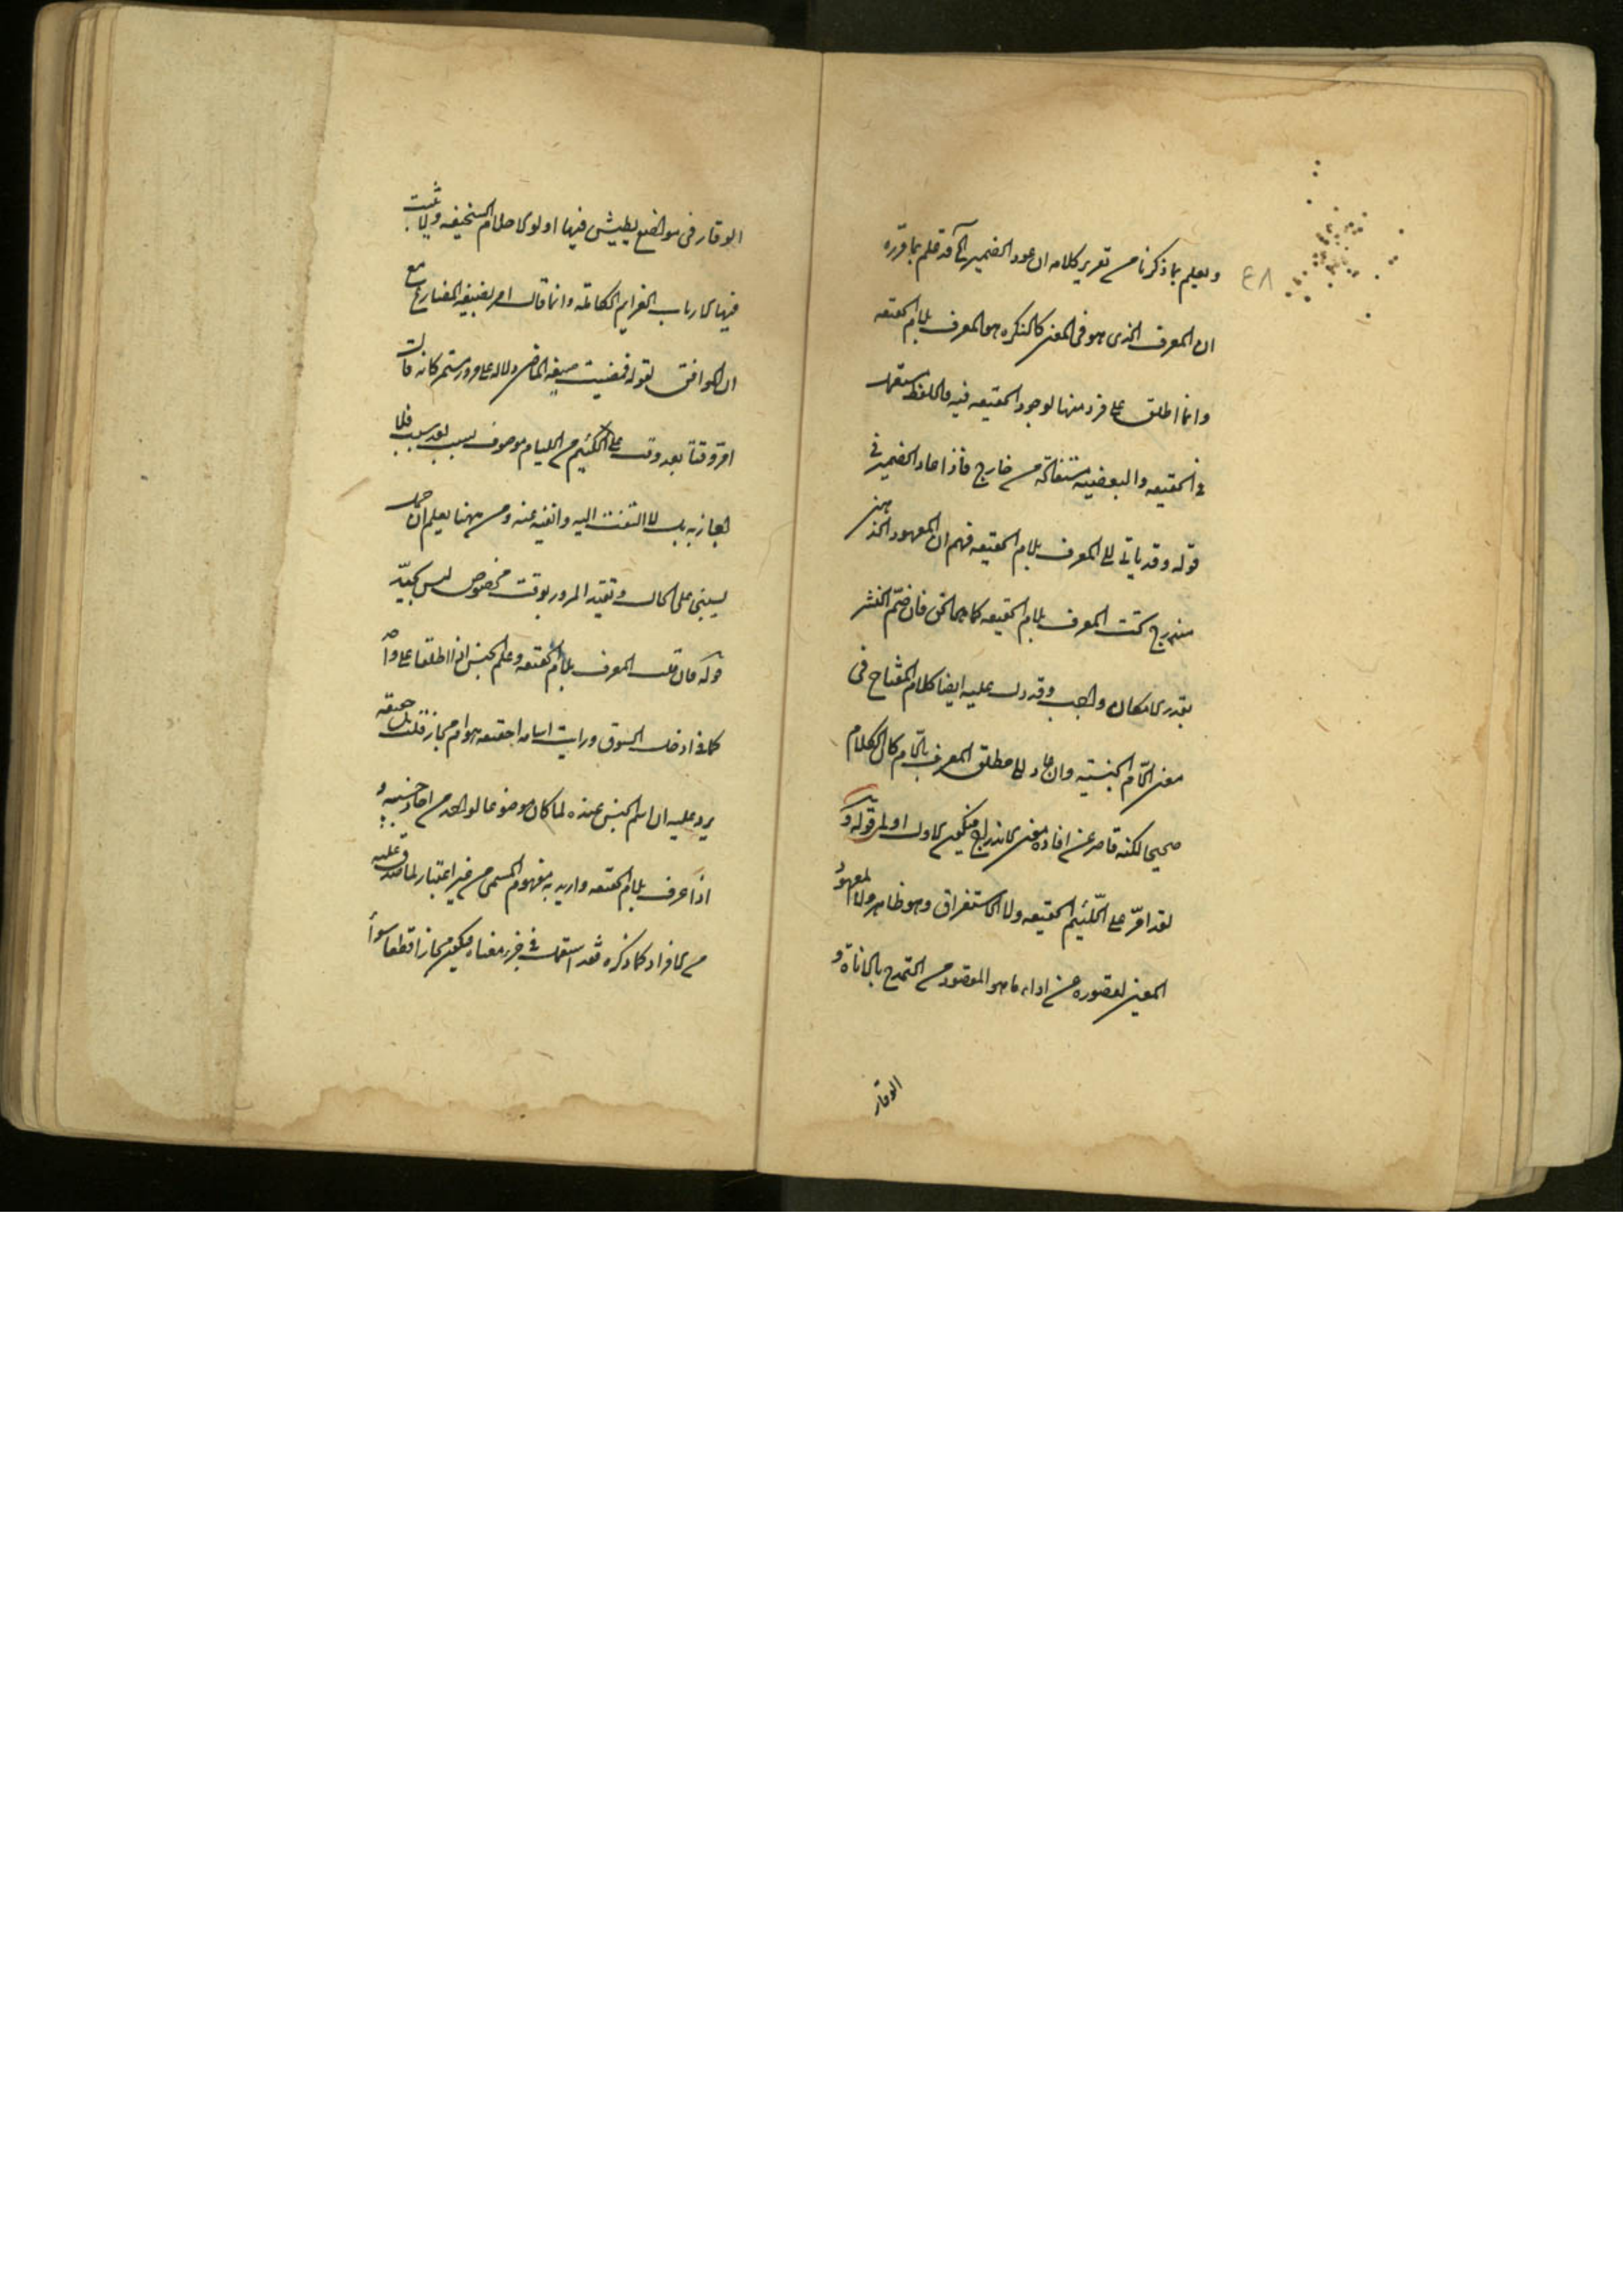 ويعلم بما ذكرنا من تقرير كلامه ان عود الضمير قد علم بما قرره
٤٨
ان المعرف الذى هو فى المعنى كالنكره هو المعرف بلام الحقيقه
وانما اطلق على فرد منها لوجود الحقيقه فيه فاللفظ مستعمل
فى الحقيقه والبعضيه مستفاده من خارج فاذا عاد الضمير فى
قوله وقد ياتى الى المعرف بلام الحقيقه فهم ان المعهود الذهنى
مندرج تحت المعرف بلام الحقيقه كما هو الحق فان ضم النشر
بقدر الامكان واجب وقد دل عليه ايضا كلام المفتاح فى
معنى اللام الجنسيه وان عاد الى مطلق المعرف باللام كان الكلام
صحيحا لكنه قاصر عن افاده معنى الاندراج فيكون الاول اولى قوله و
لقد امر على اللئيم الحقيقه ولا الاستغراق وهو ظاهر ولا المعهود
المعين لقصوره عن اداء ما هو المقصود من التمدح بالاناة و
الوقار
الوقار فى مواضع يطيش فيها اولوا الاحلام السخيفه ويثبت
فيها ارباب العزايم الكامله وانما قال امر بصيغه المضارع مع
ان الموافق لقوله فمضيت صيغه الماضى دلاله على مرور مستمر كانه قال
امر وقتا بعد وقت على لئيم من الليام موصوف بسب بعد سب فلا
اجازيه بل لا التفت اليه واتفيه عنه ومن ههنا يعلم ان حمل
يسبنى على الحال وتقيد المرور بوقت مخصوص ليس بجيد
قوله فان قلت المعرف بلام الحقيقه وعلم الجنس اذا اطلقا على واحد
كما فى ادخل السوق ورايت اسامه احقيقه هو ام مجاز قلت بل حقيقه
يرد عليه ان اسم الجنس عنده لما كان موضوعا لواحد من احاد جنسه و
اذا عرف بلام الحقيقه واريد به مفهوم المسمى من غير اعتبار لما صدق عليه
من الافراد كما ذكره فقد استعمل فى جزء معناه فيكون مجازا قطعا سواء